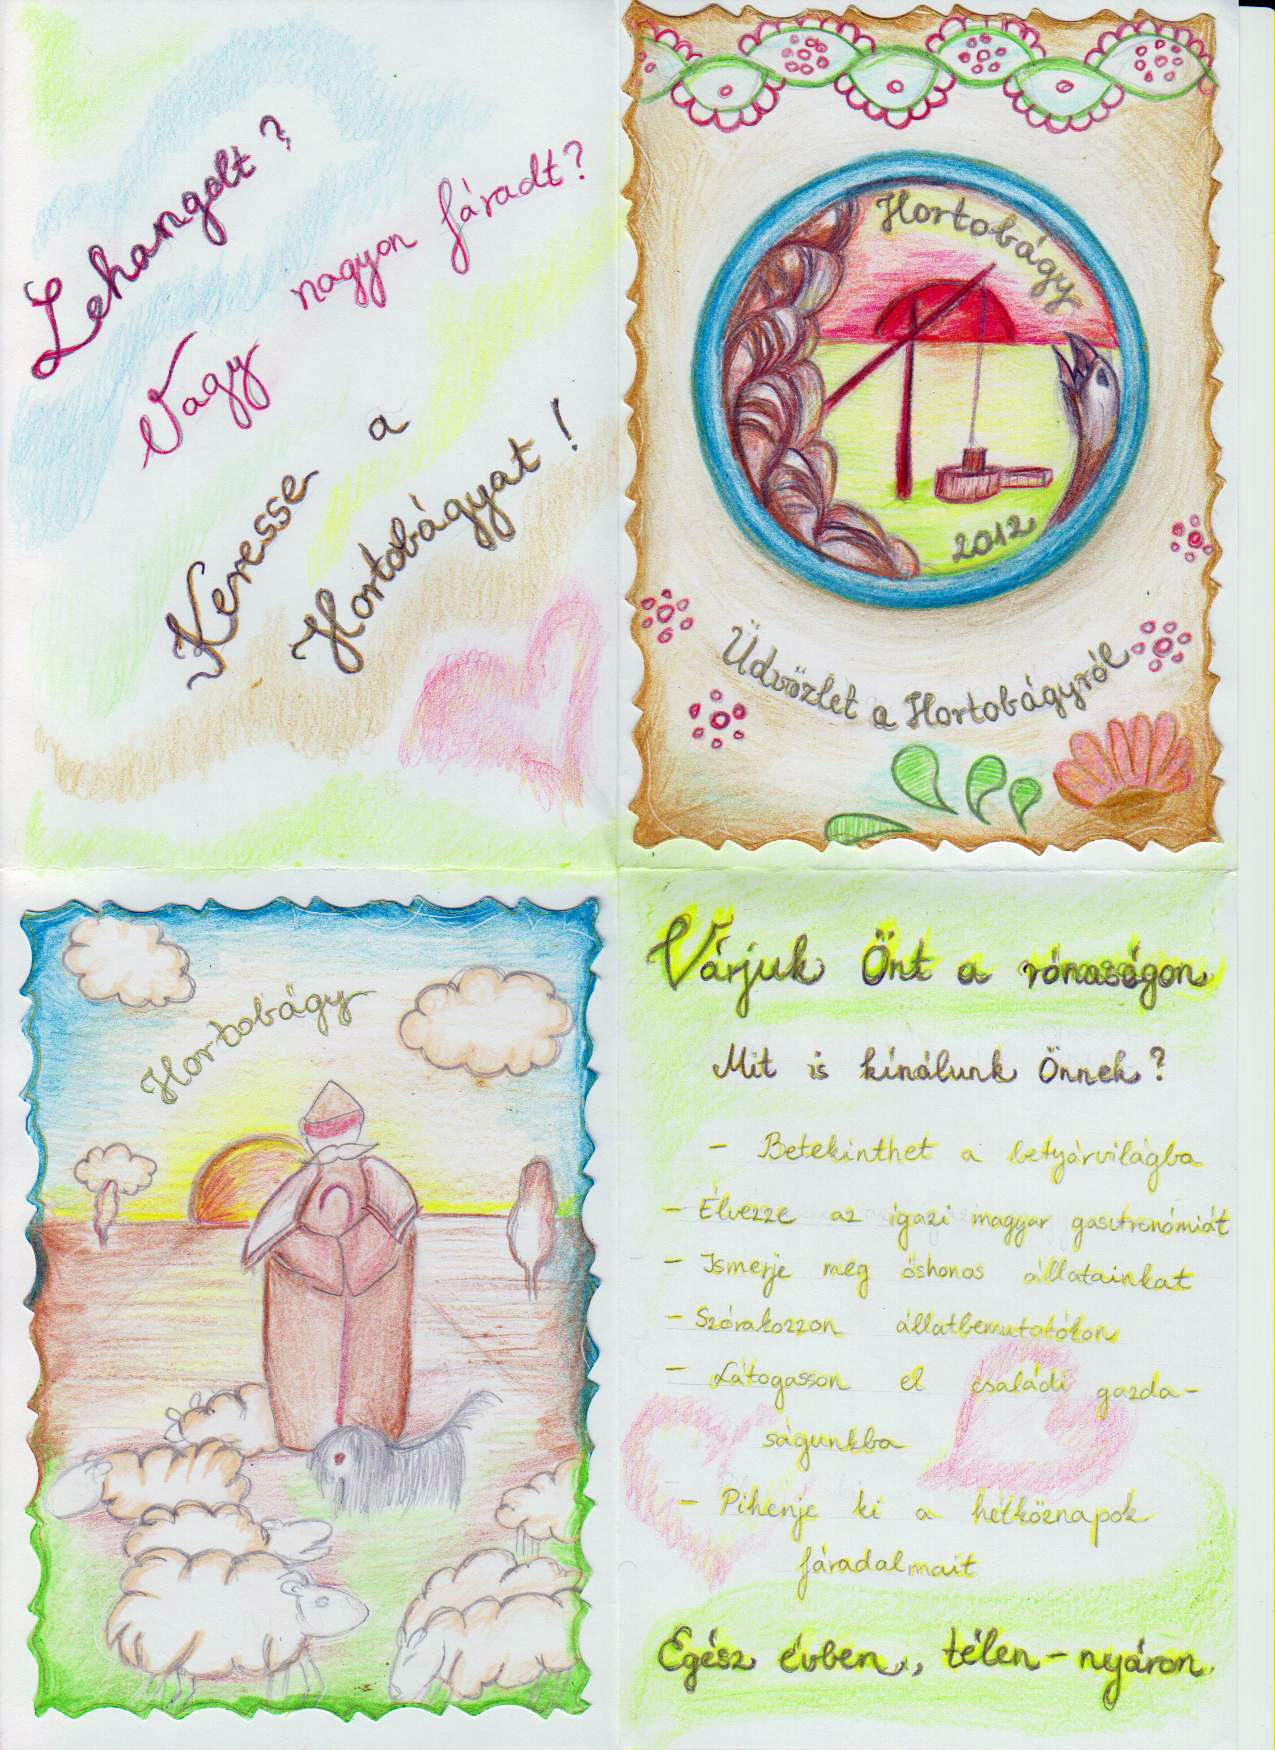 Lehangolt?
Vagy nagyon fáradt?
Keresse a
Hortobágyat!
Hortobágy
2012
Üdvözlet a Hortobágyról
Hortobágy
Várjuk Önt a rónaságon
Mit is kínálunk Önnek?
- Betekinthet a betyárvilágba
- Élvezze az igazi magyar gasztronómiát
- Ismerje meg őshonos állatainkat
- Szórakozzon állatbemutatókon
- Látogasson el családi gazda-
ságunkba
- Pihenje ki a hétköznapok
fáradalmait
Egész évben, télen-nyáron